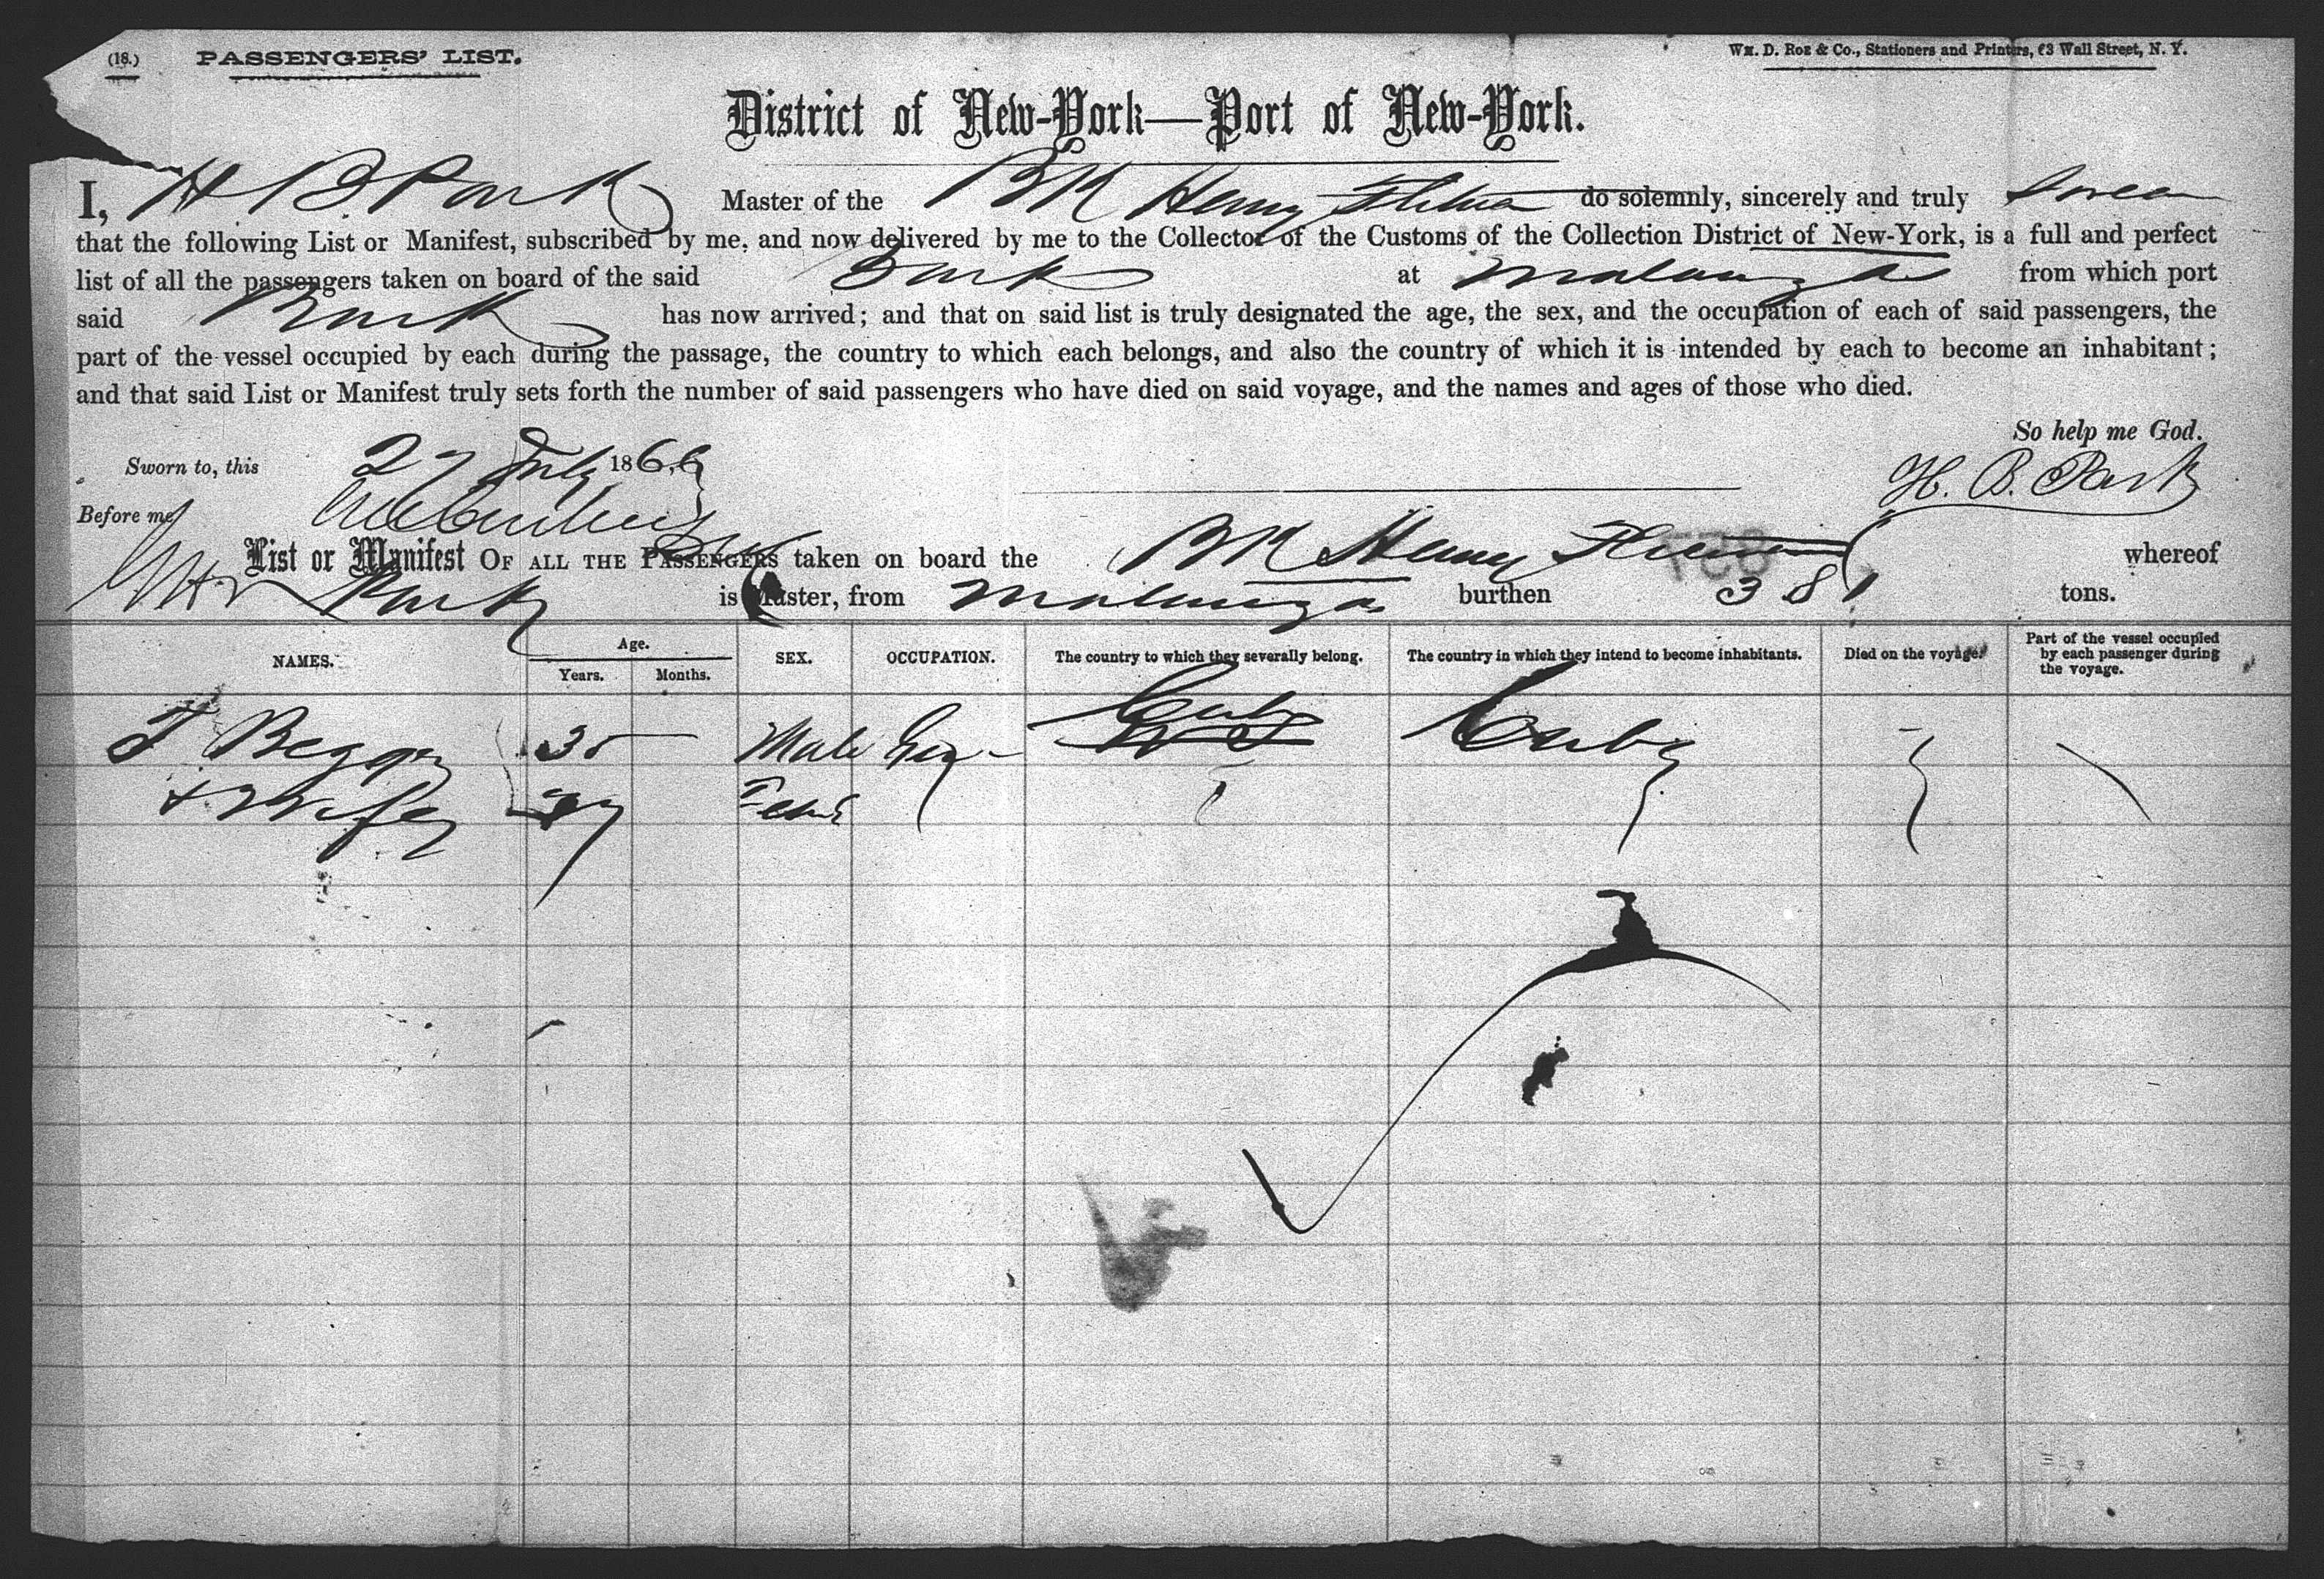 (18.) PASSENGERS' LIST. Wm. D. Roe & Co., Stationers and Printers, 63 Wall Street, N. Y.
District of New-York—Port of New-York.
I, H B Park Master of the BK Henry do solemnly, sincerely and truly swear
that the following List or Manifest, subscribed by me, and now delivered by me to the Collector of the Customs of the Collection District of New-York, is a full and perfect
list of all the passengers taken on board of the said Bark at Matanzas from which port
said Bark has now arrived; and that on said list is truly designated the age, the sex, and the occupation of each of said passengers, the
part of the vessel occupied by each during the passage, the country to which each belongs, and also the country of which it is intended by each to become an inhabitant;
and that said List or Manifest truly sets forth the number of said passengers who have died on said voyage, and the names and ages of those who died.
So help me God.
Sworn to, this 27 July 1866 H. B. Park
Before me
List or Manifest OF ALL THE PASSENGERS taken on board the BK Henry whereof
Park is Master, from Matanzas burthen 381 tons.
NAMES. Age. Years. Months. SEX. OCCUPATION. The country to which they severally belong. The country in which they intend to become inhabitants. Died on the voyage. Part of the vessel occupied by each passenger during the voyage.
35 Male Cuba Cuba
+ Wife 27